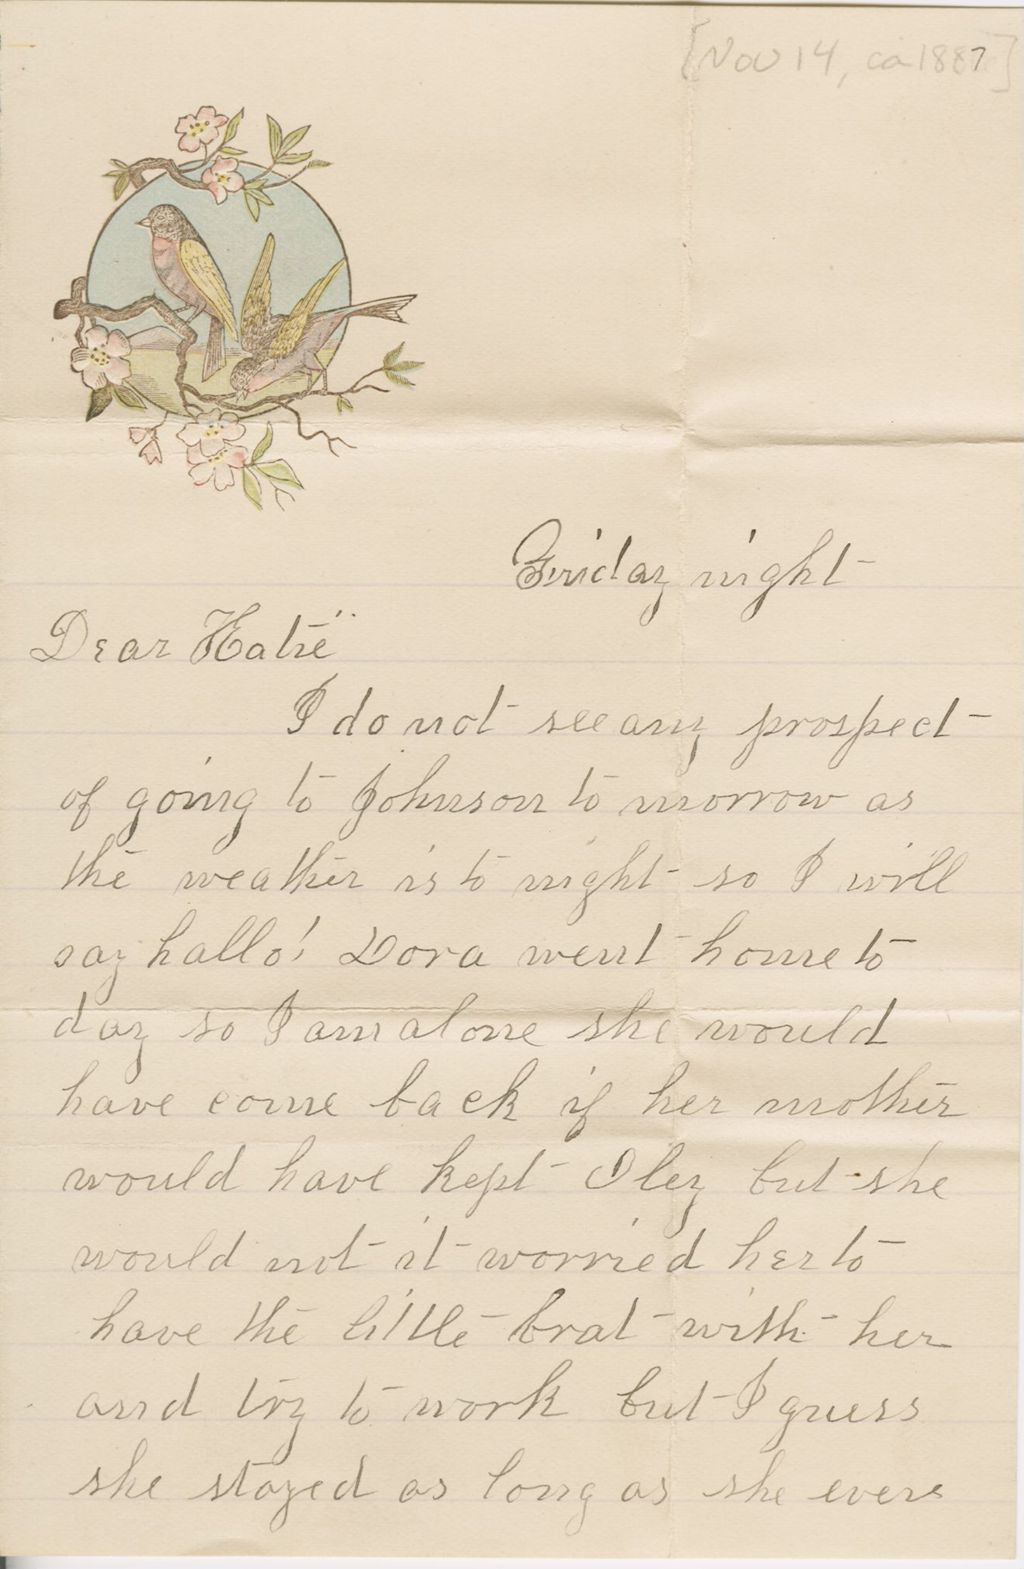 [Nov 14, ca 1887]
Friday night
Dear Katie"
I do not see any prospect
of going to Johnson to morrow as
the weather is to night so I will
say hallo! Dora went home to
day so I am alone she would
have come back if her mother
would have kept Iley but she
would not it worried her to
have the little brat with her
and try to work but I guess
she stayed as long as she evers